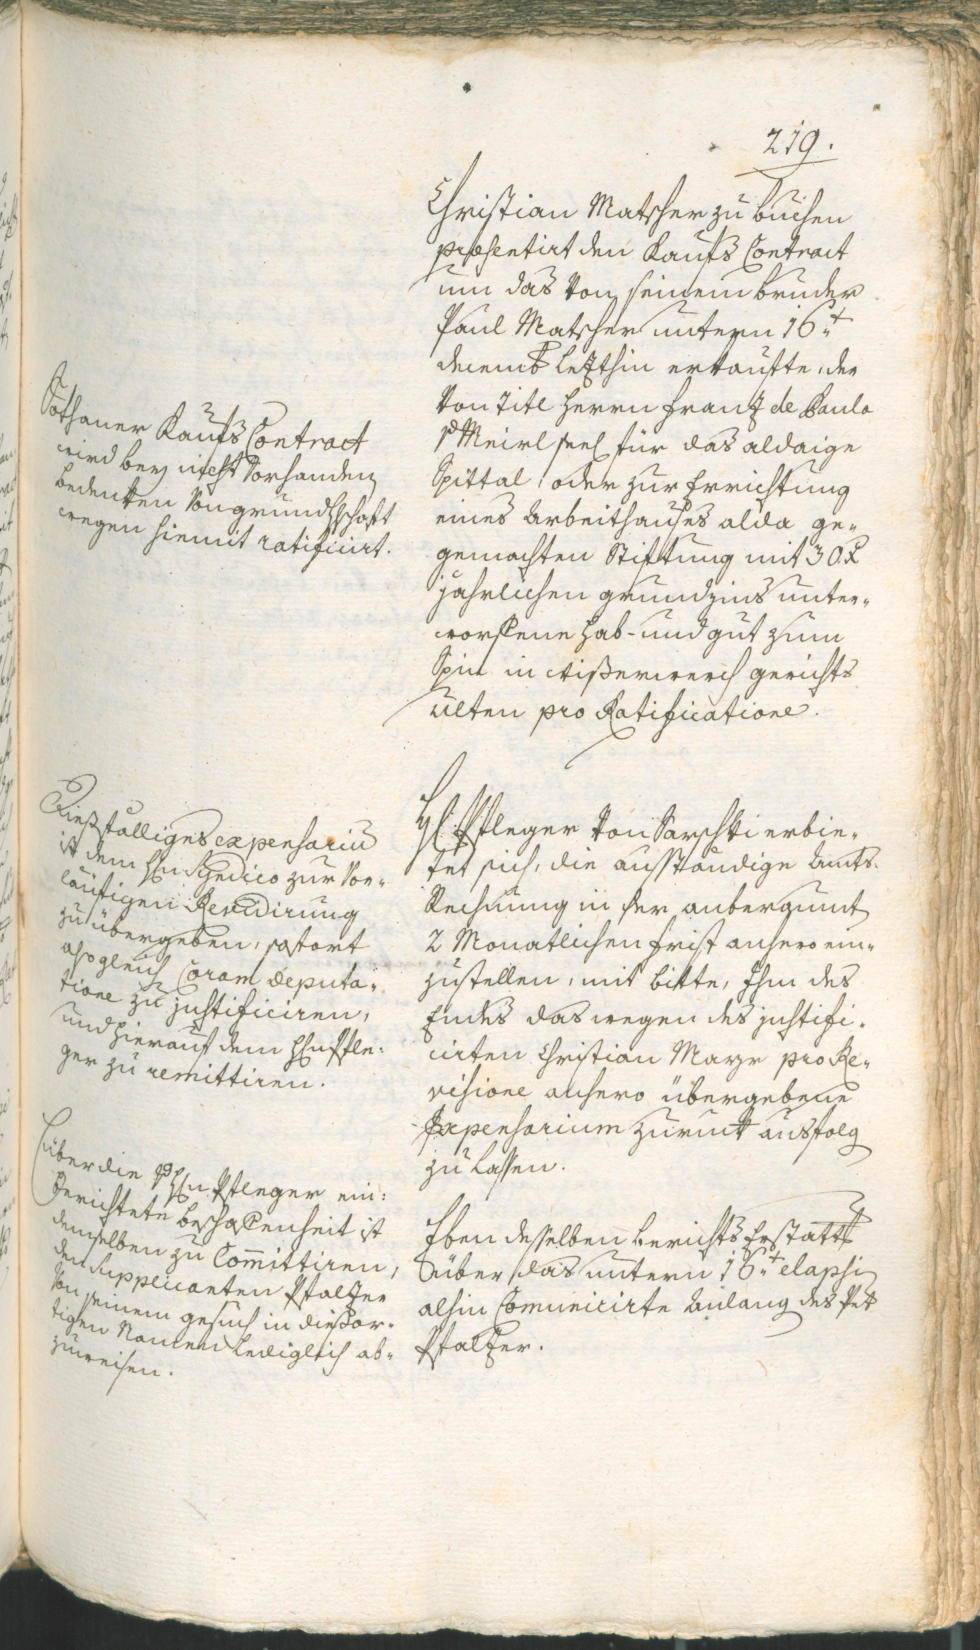 219.
Christian Matscher zu buchen
præsentirt den Kaufs Contract
um das von seinem bruder
Paul Matscher untern 16.t
decemb letzthin erkaufte, der
von Titl Herrn Frantz de Paula
Meirl seel für das aldaige
Spittal oder zur Errichtung
eines Arbeithauses alda ge-
gemachten Stiftung mit 30 x
jährlichen grundzins unter-
worffene Hab- und gut zum
Spin in gerichts
Ulten pro Ratificatione.
Sothaner Kaufs Contract
wird bey nicht vorhanden
bedenken von grundhschaft
wegen hiemit ratificirt.
H Pfleger von Sarsthl erbie-
tet sich, die ausständige Amts-
Rechnung in der anberaumt
2 Monatlichen frist anhero ein-
zustellen, mit bitte, Ihm des
Endes das wegen des justifi-
cirten Christian Mayr pro Re-
visione anhero übergebene
Expensarium zuruck ausfolg
zu lassen.
Diesfälliges expensariu
ist dem Hn Syndico zur vor-
läufigen Revidirung
zu übergeben, sofort
alsogleich Coram deputa-
tione zu justificiren,
und hierauf dem Hn Pfle-
ger zu remittiren.
Eben desselben berichts Erstatt
über das untern 16.t elapsi
alhin Comunicirte Anlang des Pet
Pfaltzer.
über die Hn Pfleger ein-
berichtete beschaffenheit ist
demselben zu Committiren,
den Supplicanten Pfaltzer
von seinem gesuch in diesor-
tigen Namen lediglich ab-
zuweisen.